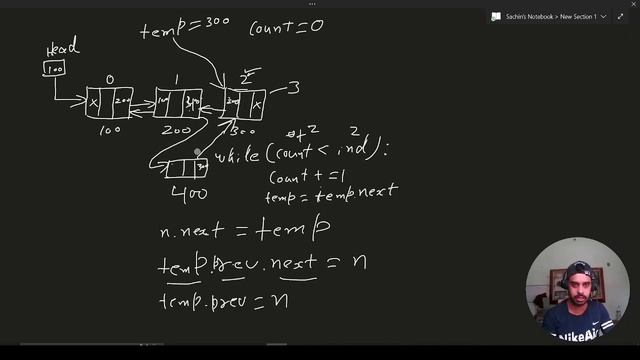 Sachin's Notebook > New Section 1
temp = 300 count = 0
Head
100
0 1 2
x 200 100 200 x
3
100 200 300
while (count < ind):
0 1 2 2
300
count + = 1
400
temp = temp.next
n.next = temp
temp.prev.next = n
temp.prev = n
NIKE AIR